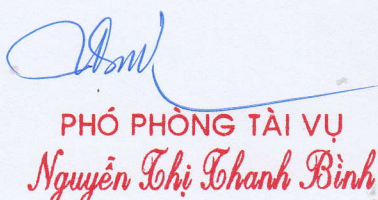 PHÓ PHÒNG TÀI VỤ
Nguyễn Thị Thanh Bình